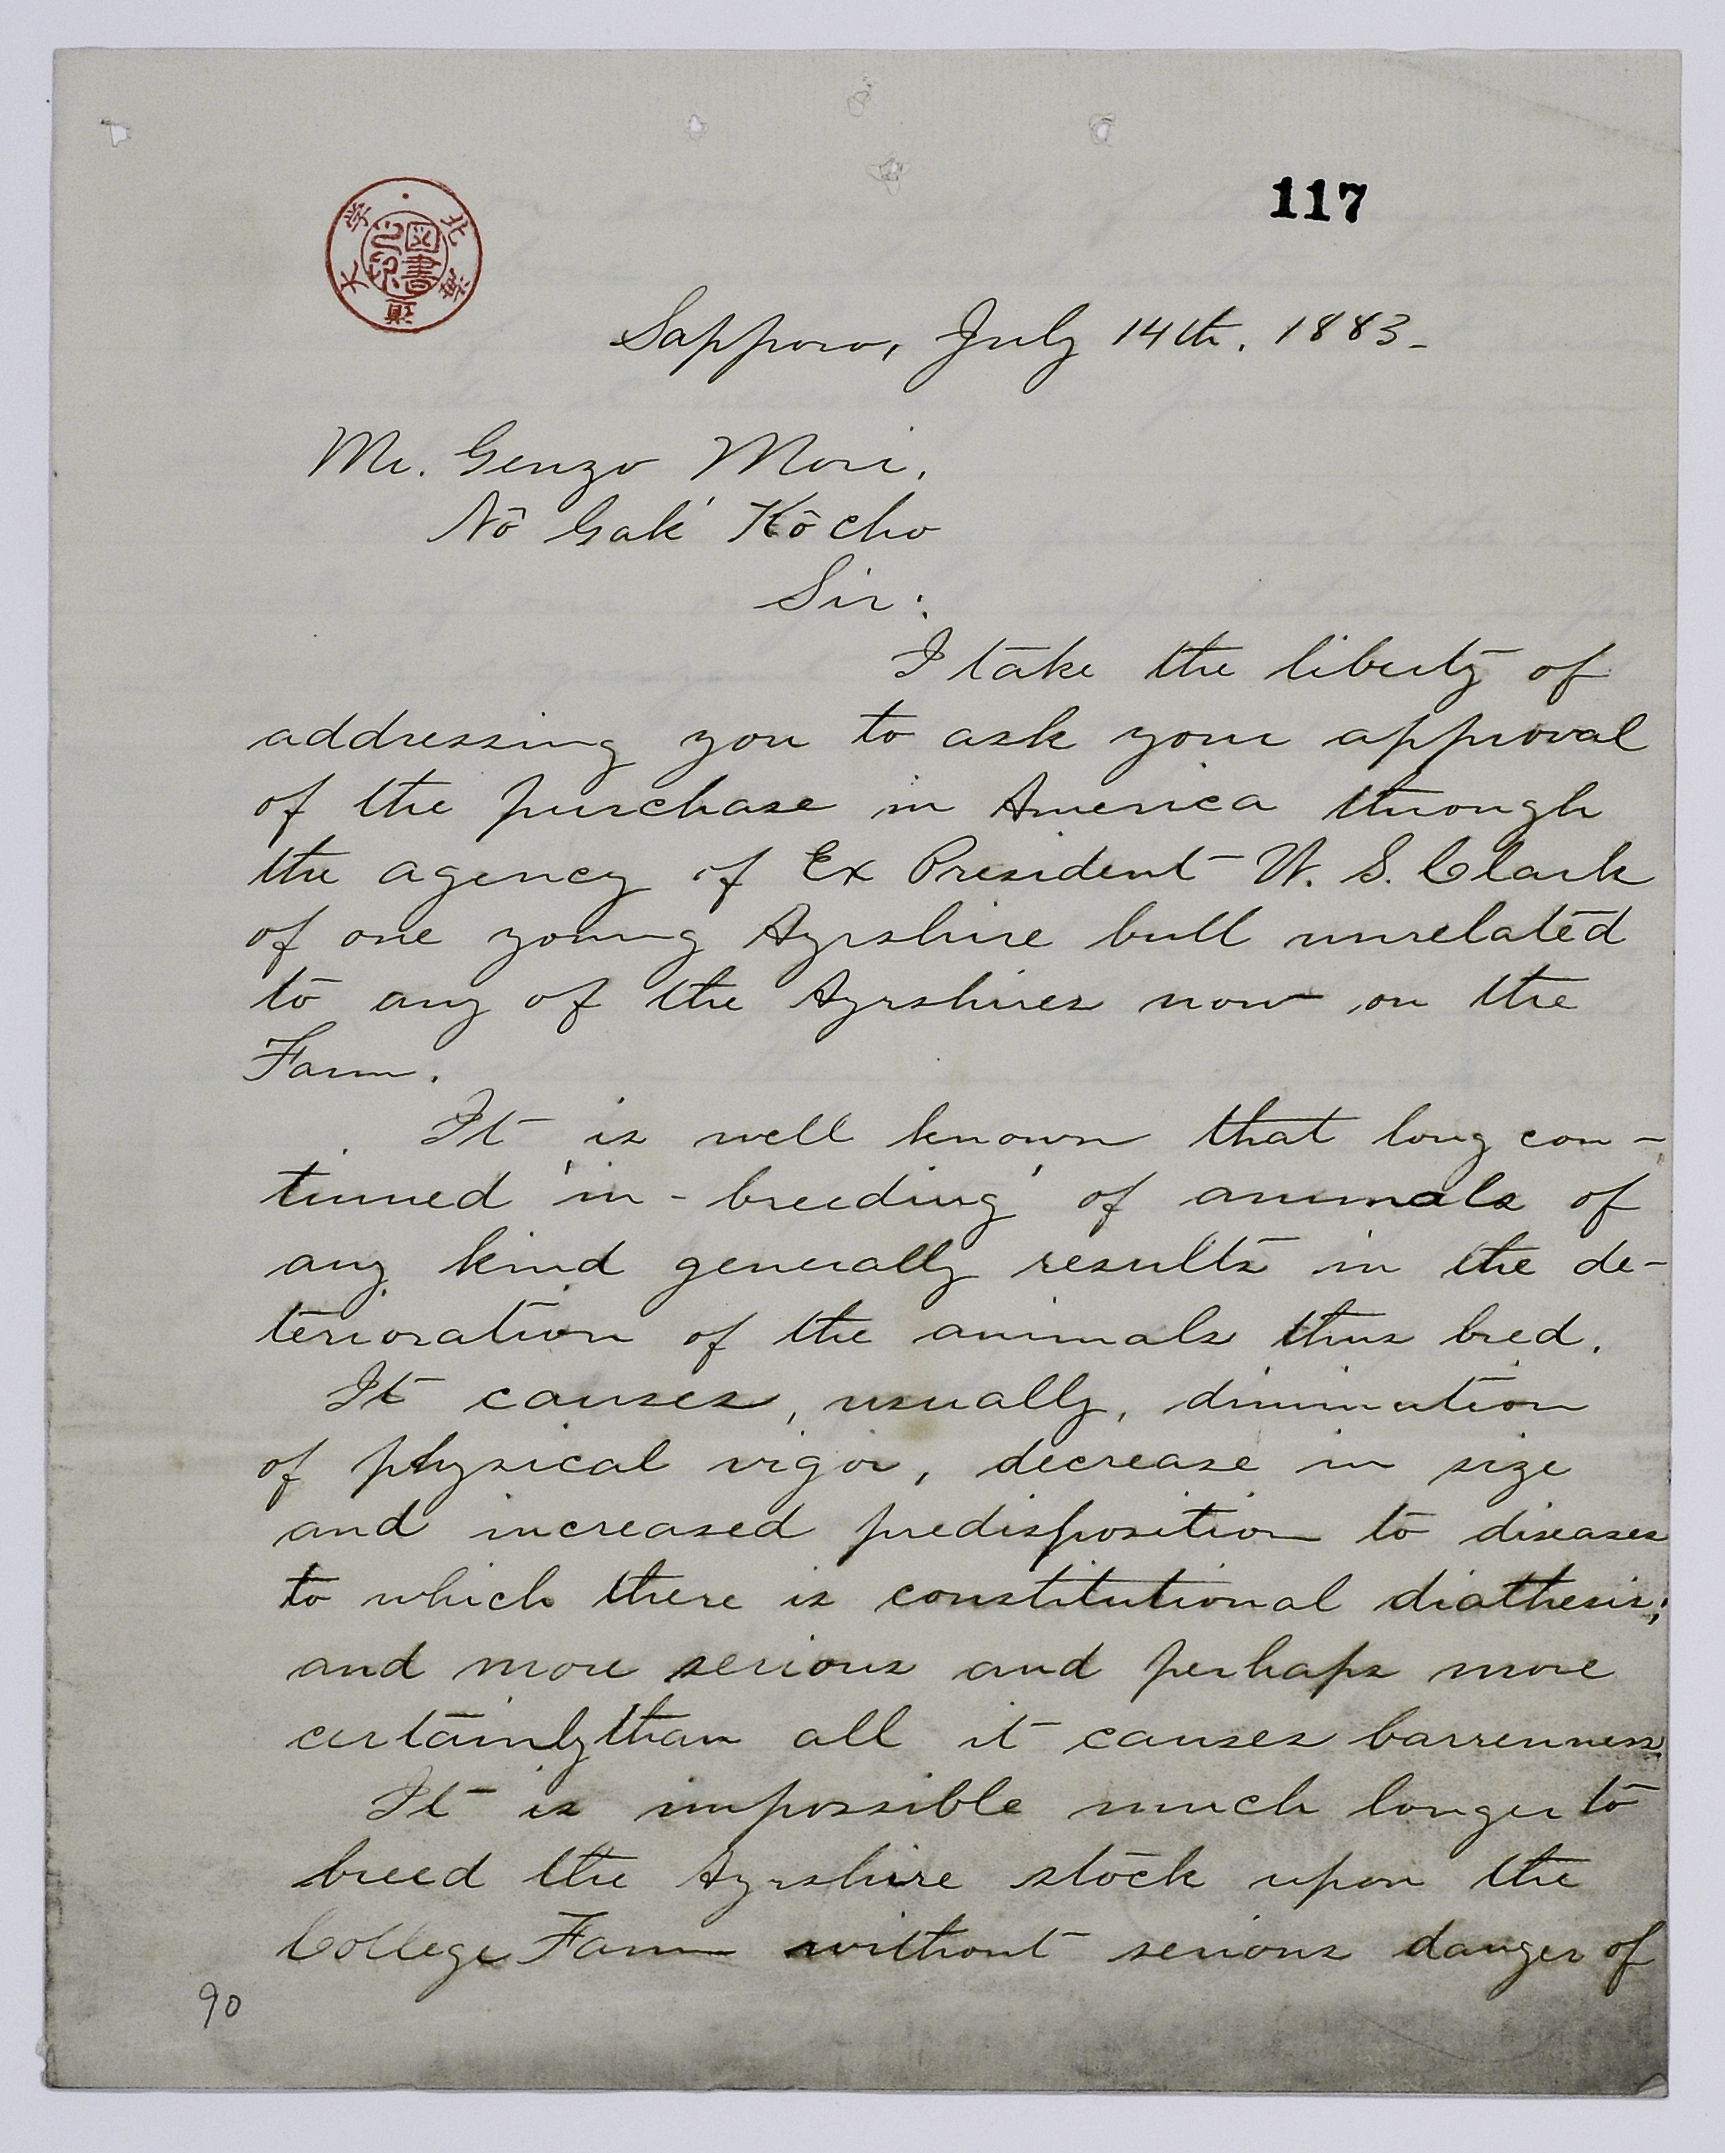 117
北海道大学
図書之印
Sapporo, July 14th. 1883-
Mr. Genzo Mori.
Nô Gak' Kôcho
Sir:
I take the liberty of
addressing you to ask your approval
of the purchase in America through
the agency of Ex President W. S. Clark
of one young Ayrshire bull unrelated
to any of the Ayrshires now on the
Farm.
It is well known that long con-
tinued 'in-breeding' of animals of
any kind generally results in the de-
terioration of the animals thus bred.
It causes, usually, diminution
of physical vigor, decrease in size
and increased predisposition to diseases
to which there is constitutional diathesis;
and more serious and perhaps more
certainly than all it causes barrenness.
It is impossible much longer to
breed the Ayrshire stock upon the
College Farm without serious danger of
90